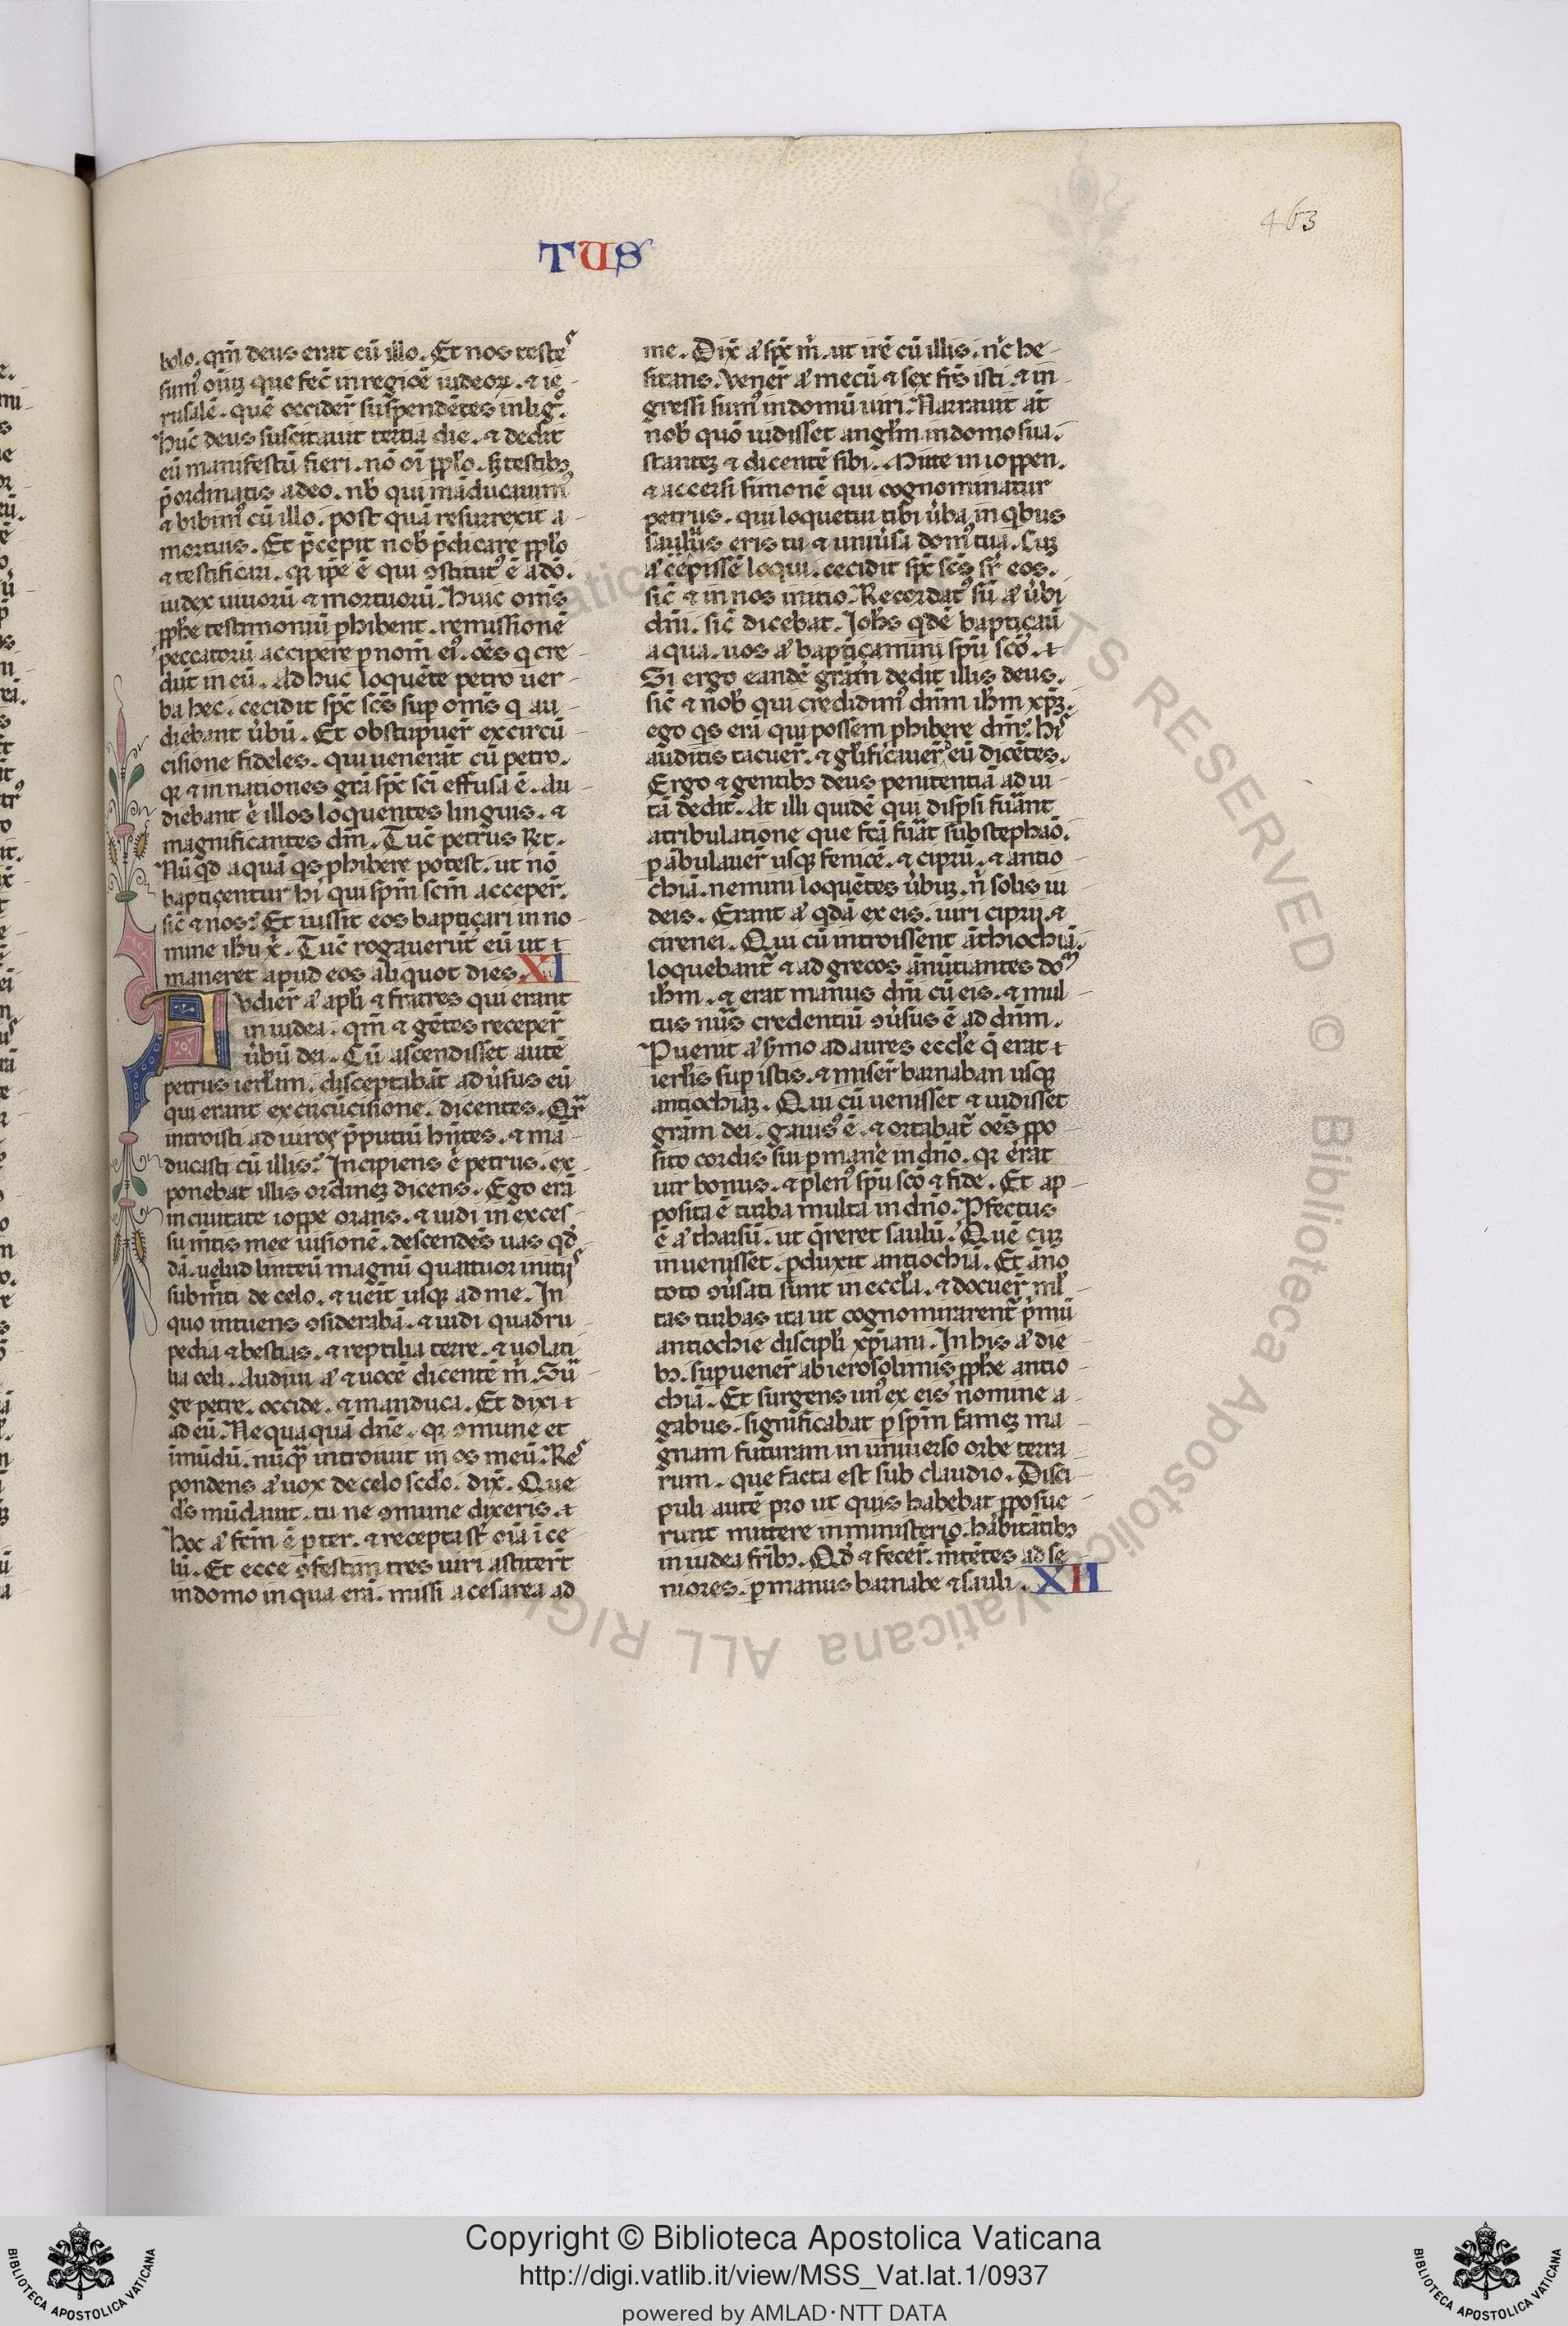 463
TUS
bolo. qm̄ deus erat cū illo. Et nos teste᷒
sum᷒ oīuꝫ que fec̄ in regiōe iudeoꝝ. ⁊ ie-
rusalē. quē occider̄ suspendētes in lig᷒.
hūc deus suscitauit tertia die. ⁊ dedit
eū manifestū fieri. nō oī pplo. sꝫ testibꝫ
p̄ordinatis adeo. nob̄ qui māducauim᷒
⁊ bibim᷒ cū illo. post quā resurrexit a-
mortuis. Et p̄cepit nob̄ p̄dicare pplo
⁊ testificari. qꝛ ip̄e ē qui ↄstitut᷒ ē a dō.
iudex uiuorū ⁊ mortuorū. Huic om̄s
ꝓphe testimoniū ꝑhibent. remissionē
peccatorū accipere ꝑ nom̄ ei᷒. oēs q cre-
dūt in eū. Ad huc loquēte petro uer-
ba hec. cecidit sp̄c sc̄s suꝑ om̄s q au-
diebant ūbū. Et obstupuer̄ ex circū-
cisione fideles. qui uenerāt cū petro.
qꝛ ⁊ in nationes grā sp̄c sc̄i effusa ē. Au-
diebant ė illos loquentes linguis. ⁊
magnificantes dm̄. Tūc petrus Ret.
Nūqd aquā qs ꝓhibere potest. ut nō
baptiçentur hi qui sp̄m sc̄m acceper̄.
sic̄ ⁊ nos? Et iussit eos baptiçari in no-
mine ih̄u x̄. Tūc rogauerūt eū ut ⁊
maneret apud eos aliquot dies. XI
Audier̄ a᷒ apl̄i ⁊ fratres qui erant
in iudea. qm̄ ⁊ gētes receper̄
ūbū dei. Cū ascendisset autē
petrus ierl̄im. disceptabāt ad ūsus eū
qui erant ex circūcisione. dicentes. Qr̄
introisti ad uiros p̄putiū hn̄tes. ⁊ mā-
ducasti cū illis? Incipiens ė petrus. ex-
ponebat illis ordineꝫ dicens. Ego erā
in ciuitate ioppe orans. ⁊ uidi in exces-
su m̄tis mee uisionē. descendēs uas qd-
dā. uelud linteū magnū quattuor initii᷒
submiti de celo. ⁊ uēit usqꝫ ad me. In
quo intuens ↄsiderabā. ⁊ uidi quadru-
pedia ⁊ bestias. ⁊ reptilia terre. ⁊ uolati-
lia celi. Audiui a᷒ ⁊ uocē dicentē m̄. Sū-
ge petre. occide. ⁊ manduca. Et dixi ⁊
ad eū. Nequaquā dn̄e. qꝛ ↄmune et
īmūdū. nūqꝫ introiuit in os meū. Re᷒
pondens a᷒ uox de celo scd̄o. dix̄. Que
ds̄ mūdauit. tu ne ↄmune dixeris. ⁊
hoc a᷒ fcm̄ ē ꝑ ter. ⁊ recepta sr̄ oīa ī ce-
lū. Et ecce ↄfestim tres uiri astiterūt
in domo in qua erā. missi a cesarea ad
me. Dix̄ a᷒ sp̄c m̄. ut irē cū illis. nc̄ he-
sitans. Vener̄ a᷒ mecū ⁊ sex frs̄ isti. ⁊ in-
gressi sum᷒ in domū uiri. Narrauit at̄
nob̄ quō uidisset angl̄m in domo sua.
stanteꝫ ⁊ dicentē sibi. Mitte in ioppen.
⁊ accersi simonē qui cognominatur
petrus. qui loquetur tibi ūba in qbus
saluus eris tu ⁊ uniūsa dom᷒ tua. Cuꝫ
a᷒ cepissē loqui. cecidit sp̄c sc̄s sr̄ eos.
sic̄ ⁊ in nos initio. Recordat᷒ sū a᷒ ūbi
dn̄i. sic̄ dicebat. Joh̄s qdē baptiçauı̄
aqua. uos a᷒ baptiçamini sp̄u sc̄o. ⁊
Si ergo eandē grām dedit illis deus.
sic̄ ⁊ nob̄ qui credidim᷒ dn̄m ih̄m xp̄ꝫ.
ego qs erā qui possem ꝓhibere dm̄? hi᷒
auditis tacuer̄. ⁊ gl̄ificauer̄ eū dicētes.
Ergo ⁊ gentibꝫ deus penitentiā ad ui-
tā dedit. At illi quidē qui dispsi fūant
a tribulatione que fcā fūat sub stephāo.
ꝑ ābulauer̄ usqꝫ fenicē. ⁊ ciprū. ⁊ antio-
chiā. nemini loquētes ūbuꝫ. n̄ solis iu-
deis. Erant a᷒ qdā ex eis. uiri ciprii. ⁊
cirenei. Qui cū introissent āthiochiā.
loquebant᷒ ⁊ ad grecos ānūtiantes do᷒
ih̄m. ⁊ erat manus dn̄i cū eis. ⁊ mul-
tus nūs credentiū ↄūsus ē ad dn̄m.
Ꝑuenit a᷒ s̄mo ad aures eccl̄e q̄ erat ⁊
ierl̄is suꝑ istis. ⁊ miser̄ barnaban usqꝫ
antiochiaꝫ. Qui cū uenisset ⁊ uidisset
grām dei. gauis᷒ ē. ⁊ ortabat᷒ oēs ꝓpo-
sito cordis sui ꝑmanē in dn̄o. qꝛ erat
uir bonus. ⁊ plen᷒ sp̄u sc̄o ⁊ fide. Et ap-
posita ē turba multa in dn̄o. Ꝓfectus
ē a᷒ tharsū. ut q̄reret saulū. Quē cuꝫ
inuenisset. ꝑduxit antiochiā. Et āno
toto ↄūsati sunt in eccl̄a. ⁊ docuer̄ ml̄-
tas turbas ita ut cognominarent᷒ p̄mū
antiochie discipl̄i xp̄iani. In his a᷒ die-
bꝫ. suꝑuener̄ ab ierosolimis ꝓphe antio-
chiā. Et surgens un᷒ ex eis nomine a-
gabus. significabat ꝑ sp̄m fameꝫ ma-
gnam futuram in uniuerso orbe terra-
rum. que facta est sub claudio. Disci-
puli autē pro ut quis habebat ꝓposue-
runt mittere in ministerio. habitātibꝫ
in iudea fribꝫ. Qd ⁊ fecer̄. mittētes ad se-
niores. ꝑ manus barnabe ⁊ sauli. XII
Copyright © Biblioteca Apostolica Vaticana
http://digi.vatlib.it/view/MSS_Vat.lat.1/0937
powered by AMLAD·NTT DATA
BIBLIOTECA APOSTOLICA VATICANA
BIBLIOTECA APOSTOLICA VATICANA
ALL RIGHTS RESERVED © Biblioteca Apostolica Vaticana